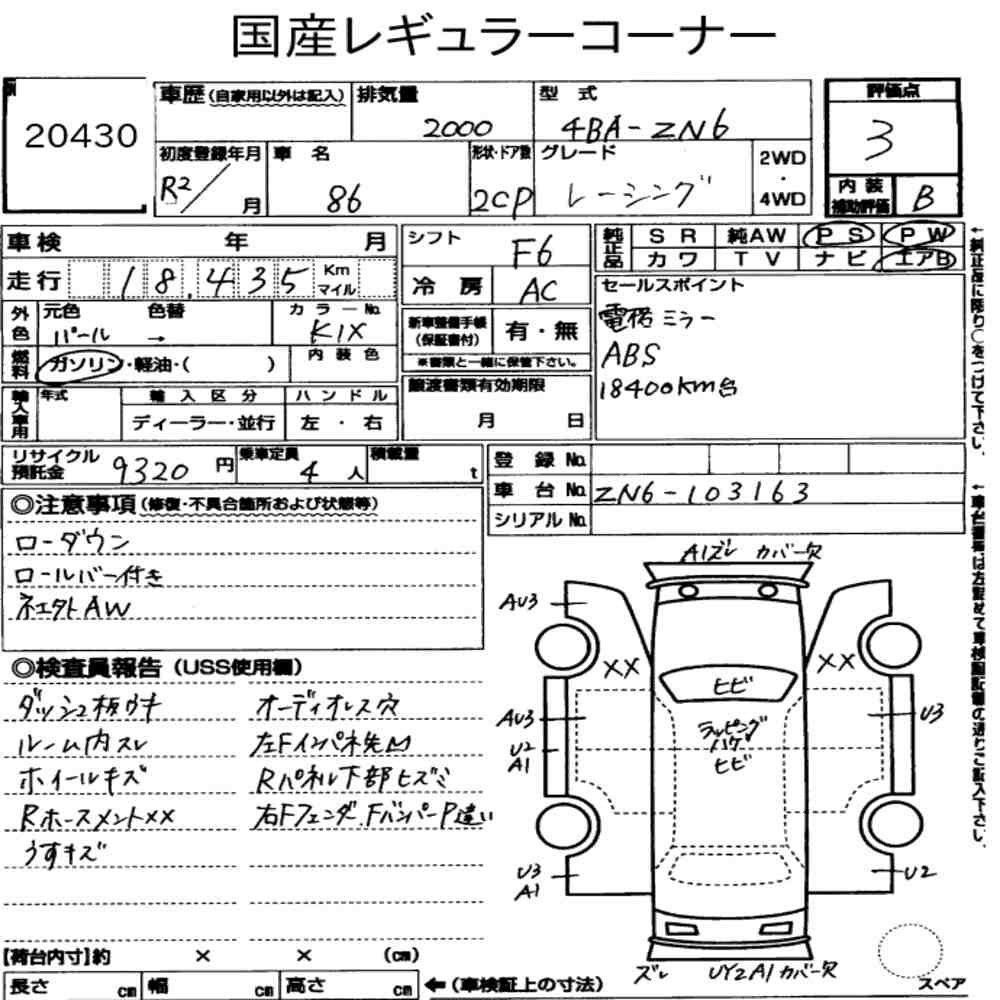 国産レギュラーコーナー
20430
車歴 (自家用以外は記入)
排気量 2000
型式 4BA-ZN6
評価点 3
初度登録年月 R2/ 月
車名 86
形状・ドア数 2CP
グレード レーシング
2WD・4WD
内装補助評価 B
車検 年 月
シフト F6
純正品 SR 純AW PS PW
カワ TV ナビ エアB
走行 18,435 Km マイル
冷房 AC
セールスポイント
電格ミラー
ABS
18400km台
外色 元色 パール 色替 →
カラーNo. K1X
新車整備手帳(保証書付) 有・無
※書類と一緒に保管下さい。
燃料 ガソリン・軽油・( )
内装色
譲渡書類有効期限
月 日
輸入車用 年式 輸入区分 ハンドル
ディーラー・並行 左・右
←純正品に限り○をつけて下さい。
リサイクル預託金 9320 円
乗車定員 4 人
積載量 t
登録No.
車台No. ZN6-103163
シリアルNo.
◎注意事項(修復・不具合箇所および状態等)
ローダウン
ロールバー付き
ネエクトAW
◎検査員報告(USS使用欄)
ダッシュ板ウキ
ルーム内スレ
ホイールキズ
Rホースメント××
うすキズ
オーディオレス穴
左Fインパネ先凹
Rパネル下部ヒズミ
右Fフェンダ、FバンパーP違い
A1ズレ カバー欠
AU3
XX
XX
ヒビ
AU3
U2
A1
ラッピング
ハゲ
ヒビ
U3
U3
A1
U2
ズレ UY2A1カバー欠
スペア
【荷台内寸】約 × × (cm)
長さ cm 幅 cm 高さ cm
←(車検証上の寸法)